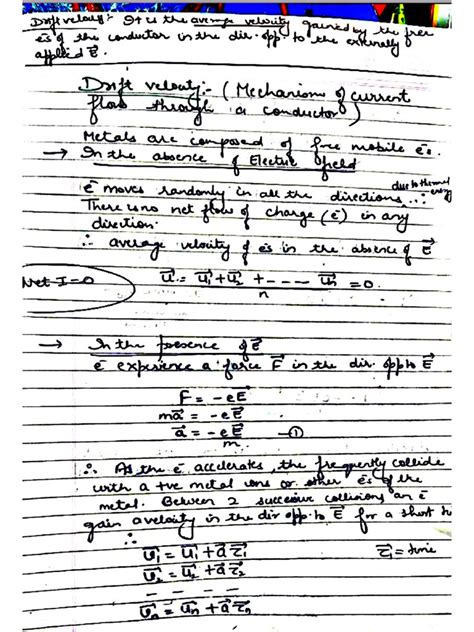 Drift velocity: It is the average velocity gained by the free
e⁻s of the conductor in the dir. opp. to the externally
applied E⃗.
Drift velocity:- (Mechanism of current
flow through a conductor)
Metals are composed of free mobile e⁻s.
→ In the absence of Electric field
e⁻ moves randomly in all the directions... due to thermal energy
There is no net flow of charge (e⁻) in any
direction.
∴ average velocity of e⁻s in the absence of E⃗
Net I=0
u⃗ = u⃗₁+u⃗₂ + ---- u⃗n / n = 0.
→ In the presence of E⃗
e⁻ experience a force F⃗ in the dir. opp to E⃗
F = -eE⃗
ma⃗ = -eE⃗
a⃗ = -eE⃗ / m —①
∴ As the e⁻ accelerates, the frequently collide
with a +ve metal ions or other e⁻s of the
metal. Between 2 successive collisions an e⁻
gain a velocity in the dir opp. to E⃗ for a short
∴
v⃗₁ = u⃗₁ + a⃗ τ₁ τ₁ = time
v⃗₂ = u⃗₂ + a⃗ τ₂
v⃗n = u⃗n + a⃗ τn